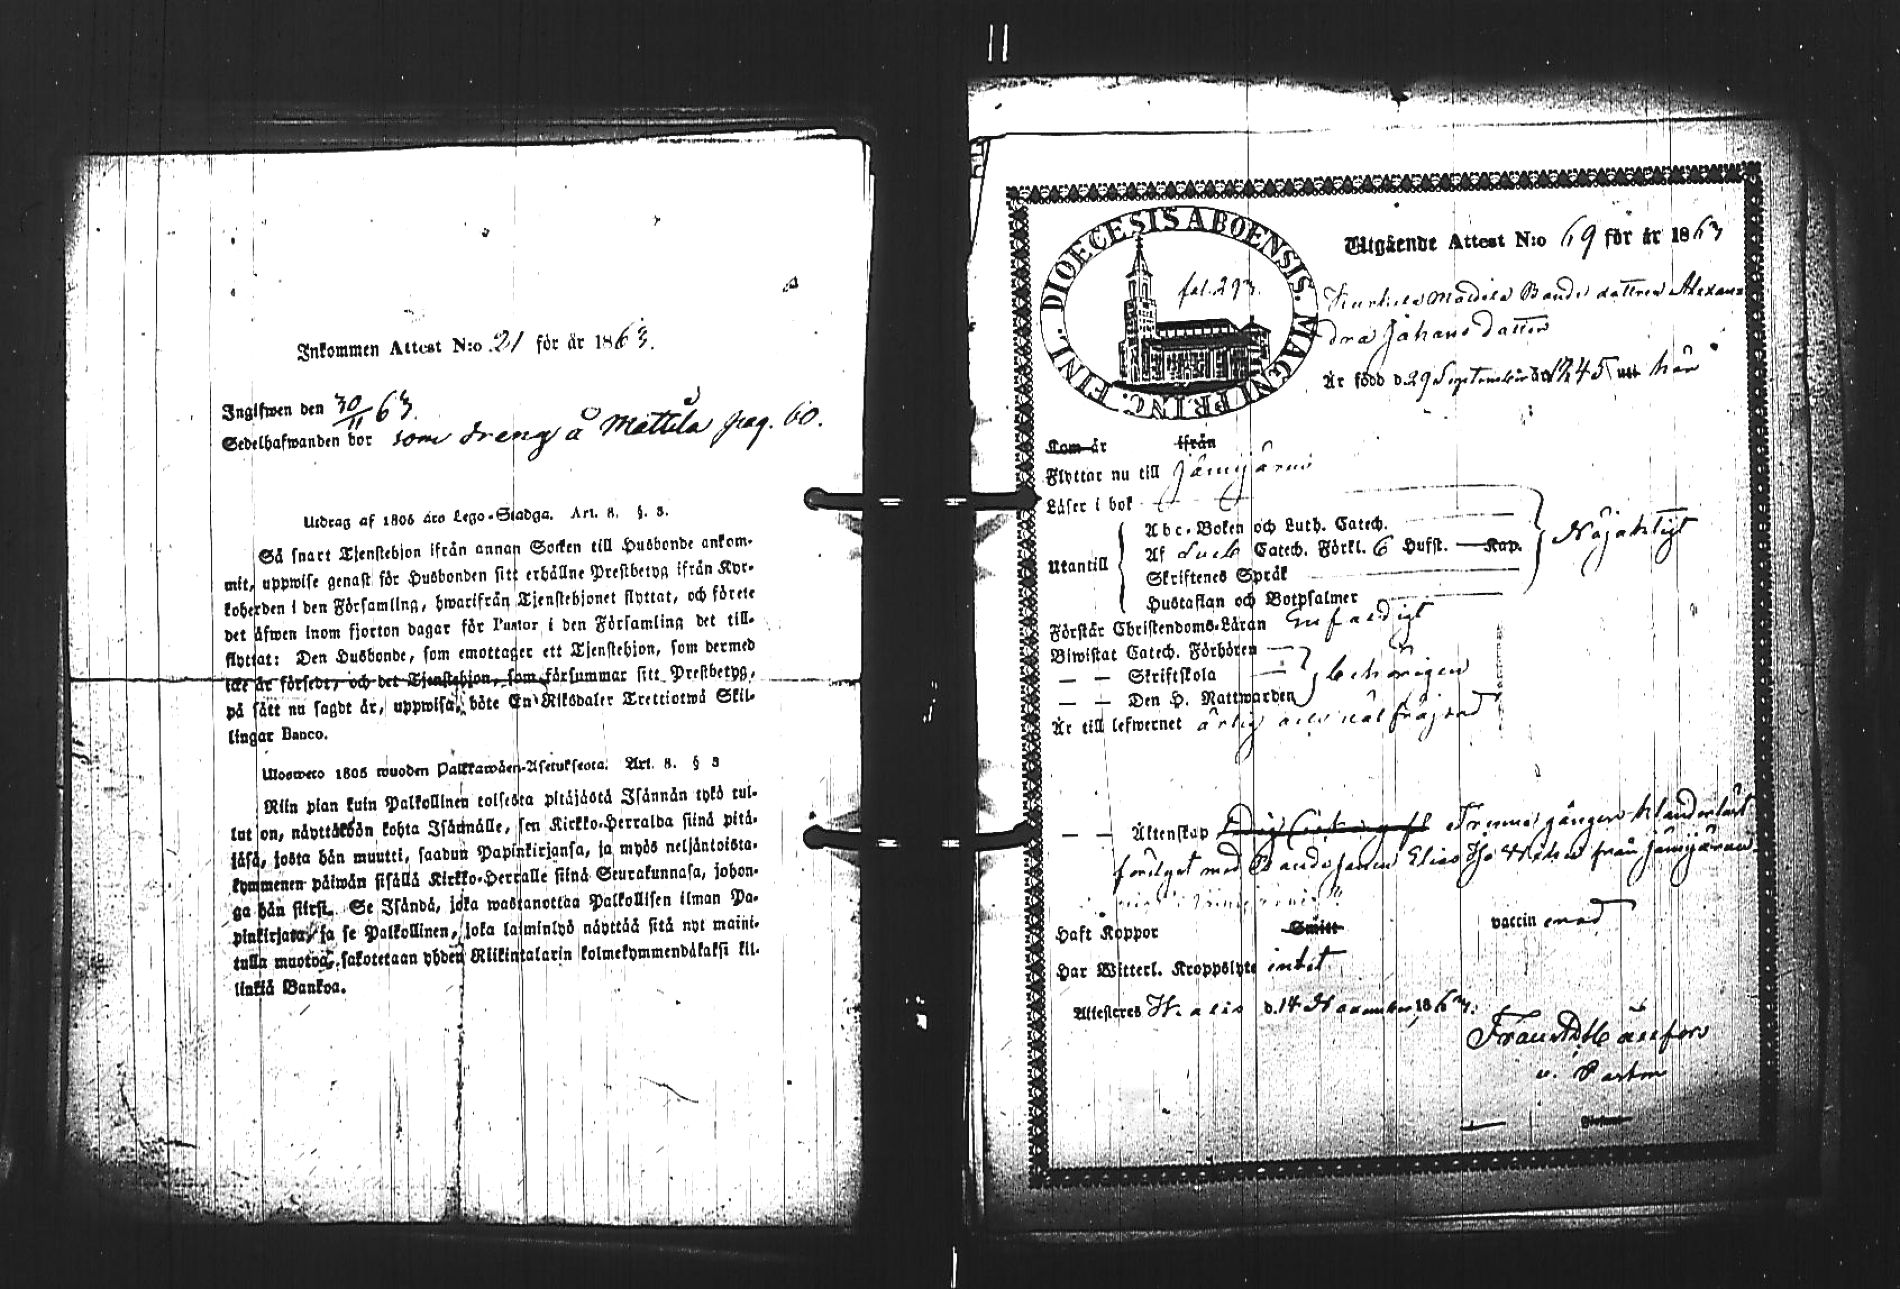 Inkommen Attest N:o 21 för år 1863.
Ingifwen den 30/11 63.
Sedelhafwanden bor som dreng å Mattila pag. 60.
Utdrag af 1805 års Lego-Stadga. Art. 8. §. 3.
Så snart Tjenstehjon ifrån annan Socken till Husbonde ankom-
mit, uppwise genast för Husbonden sitt erhållne Prestbetyg ifrån Kyr-
koherden i den Församling, hwarifrån Tjenstehjonet flyttat, och förete
det äfwen inom fjorton dagar för Pastor i den Församling det till-
flyttat: Den Husbonde, som emottager ett Tjenstehjon, som dermed
icke är försedt, och det Tjenstehjon, som försummar sitt Prestbetyg,
på sätt nu sagdt är, uppwisa, böte En Riksdaler Trettiotwå Skil-
lingar Banco.
Uloswето 1805 wuoden Palkkawäen-Asetuksesta. Art. 8. § 3
Niin pian kuin Palkollinen toisesta pitäjästä Isännän tykö tul-
lut on, näyttäkään kohta Isännälle, sen Kirkko-Herralda siinä pitä-
jäsä, josta hän muutti, saadun Papinkirjansa, ja myös neljäntoista-
kymmenen päiwän sisällä Kirkko-Herralle siinä Seurakunnasa, johon-
ga hän siirsi. Se Isändä, joka wastanottaa Palkollisen ilman Pa-
pinkirjata, ja se Palkollinen, joka laiminlyö näyttää sitä nyt maini-
tulla muotoa, sakotetaan yhden Riikintalarin kolmekymmendäkaksi kil-
linkiä Bankoa.
DIOECESIS ABOENSIS. MAGNI PRINC. FINL.
fol. 293.
Utgående Attest N:o 69 för år 1863
Mattila Bonde dottren Alexan-
dra Johans dotter
Är född d. 29 September år 1845 här
Kom år ifrån
Flyttar nu till Jämijärvi
Läser i bok
Utantill
Abc-Boken och Luth. Catech.
Af Catech. Förkl. 6 Hufst. Kap.
Skriftenes Språk
Hustaflan och Botpsalmer
Nöjaktigt
Förstår Christendoms-Läran Enfaldigt
Biwistat Catech. Förhören
— — Skriftskola
— — Den H. Nattwarden
behörigen
Är till lefwernet ärlig och väl fräjdad
— — Äktenskap Trenne gånger klanderlöst
förelyst med Bonde sonen Elias från Jämijärvi
Haft Koppor Smitt vaccinerad
Har Witterl. Kroppslyte intet
Attesteras d. 14 November 1863.
v. Pastor